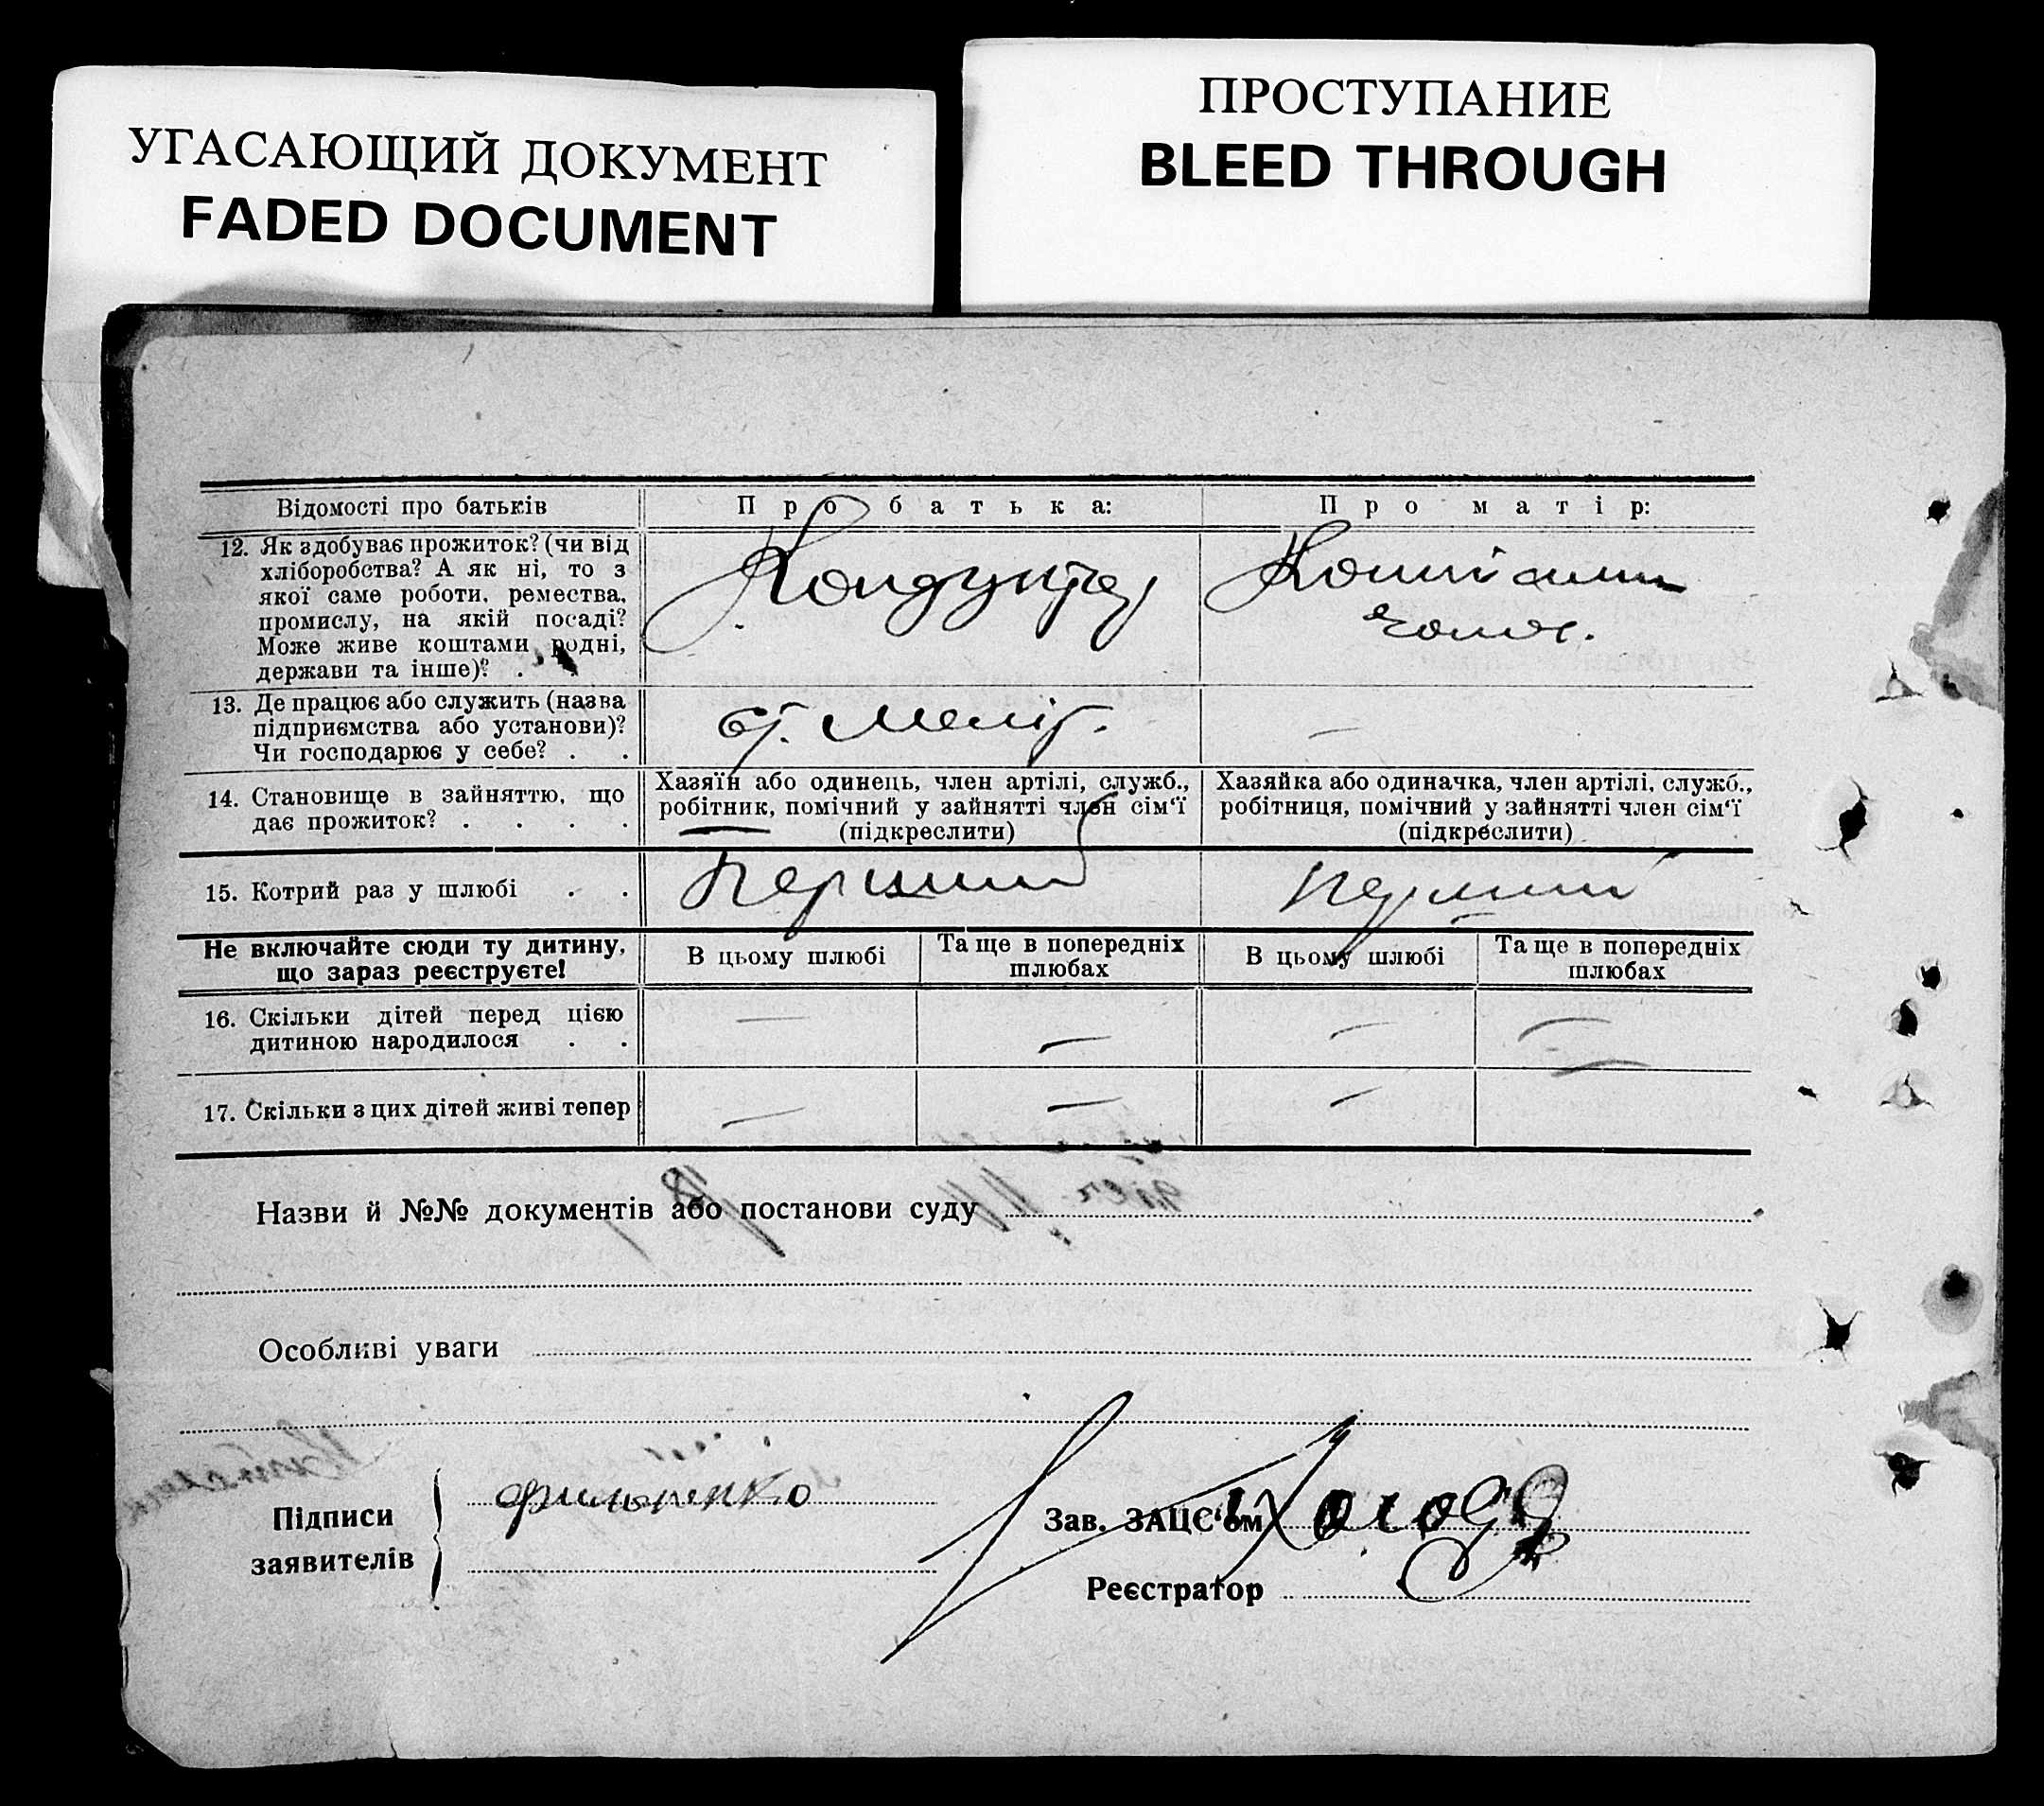 УГАСАЮЩИЙ ДОКУМЕНТ
FADED DOCUMENT
ПРОСТУПАНИЕ
BLEED THROUGH
Відомості про батьків
Про батька:
Про матір:
12. Як здобуває прожиток? (чи від
хліборобства? А як ні, то з
якої саме роботи, ремества,
промислу, на якій посаді?
Може живе коштами родні,
держави та інше)? .
Кондуктор
коштами
чолов.
13. Де працює або служить (назва
підприємства або установи)?
Чи господарює у себе? . .
ст. Меліт.
—
14. Становище в зайняттю, що
дає прожиток? . . . .
Хазяїн або одинець, член артілі, служб.,
робітник, помічний у зайнятті член сім'ї
(підкреслити)
Хазяйка або одиначка, член артілі, служб.,
робітниця, помічний у зайнятті член сім'ї
(підкреслити)
15. Котрий раз у шлюбі . .
Перший
перший
Не включайте сюди ту дитину,
що зараз реєструєте!
В цьому шлюбі
Та ще в попередніх
шлюбах
В цьому шлюбі
Та ще в попередніх
шлюбах
16. Скільки дітей перед цією
дитиною народилося . .
— — — —
17. Скільки з цих дітей живі тепер
— — — —
Назви й №№ документів або постанови суду
Особливі уваги
Підписи
заявителів
Зав. ЗАЦС'ом
Реєстратор